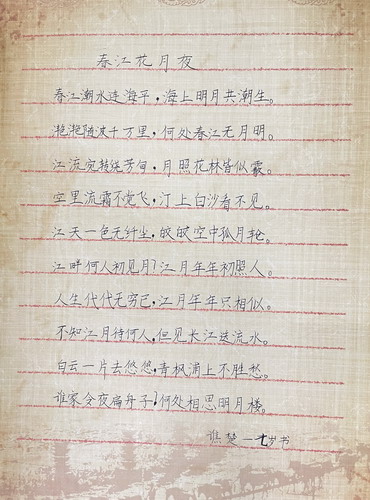 春江花月夜
春江潮水连海平，海上明月共潮生。
滟滟随波千万里，何处春江无月明。
江流宛转绕芳甸，月照花林皆似霰。
空里流霜不觉飞，汀上白沙看不见。
江天一色无纤尘，皎皎空中孤月轮。
江畔何人初见月？江月年年初照人。
人生代代无穷已，江月年年只相似。
不知江月待何人，但见长江送流水。
白云一片去悠悠，青枫浦上不胜愁。
谁家今夜扁舟子！何处相思明月楼。
楚一七岁书